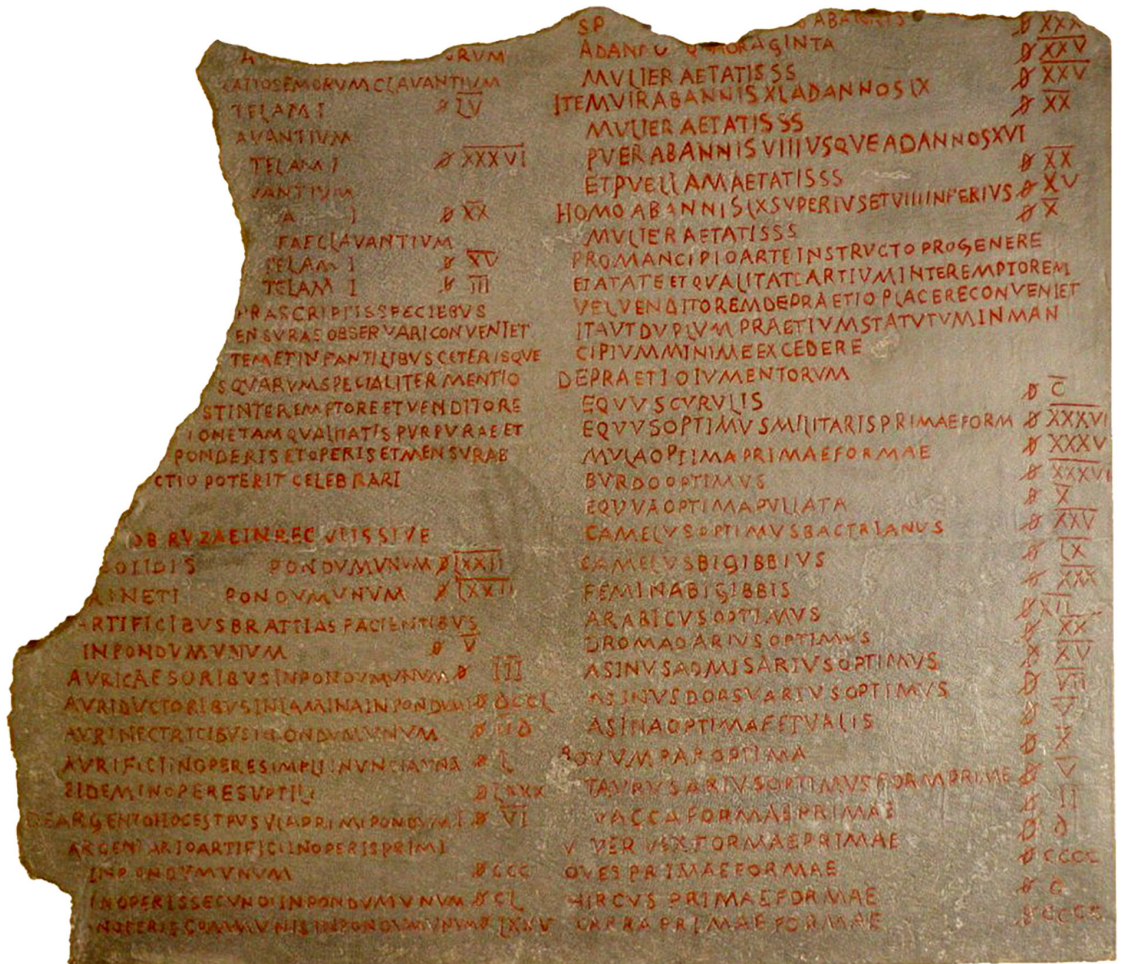 RUM
RATIOSEMORVMCLAVANTIVM
TELAM I 𐆖 LV
AVANTIVM
TELAM I 𐆖 XXXVI
VANTIVM
I 𐆖 XX
FAECLAVANTIVM
TELAM I 𐆖 XV
TELAM I 𐆖 III
PRASCRIPTISSPECIEBVS
ENSVRASOBSERVARICONVENIET
TEMETINFANTILIBVSCETERISQVE
SQVARVMSPECIALITERMENTIO
STINTEREMPTOREETVENDITORE
IONETAMQVALITATISPVRPVRAEET
PONDERISETOPERISETMENSVRAB
CTIOPOTERITCELEBRARI
OBRVZAEINREGVLISSIVE
SOLIDIS PONDVMVNVM 𐆖 LXXII
NETI PONDVMVNVM 𐆖 LXXII
ARTIFICIBVSBRATTIASFACIENTIBVS
INPONDVMVNVM 𐆖 V
AVRICAESORIBVSINPONDVMVNVM 𐆖 III
AVRIDVCTORIBVSINLAMINAINPONDVM I 𐆖 DCCL
AVRINECTRICIBVSINPONDVMVNVM 𐆖 IID
AVRIFICIINOPERESIMPLIINVNCIAVNA 𐆖 L
EIDEMINOPERESVPTILI 𐆖 LXXX
DEARGENTOHOCESTPVSVLAPRIMIPONDVM I 𐆖 VI
ARGENTARIOARTIFICIINOPERISPRIMI
INPONDVMVNVM 𐆖 CCC
INOPERISSECVNDIINPONDVMVNVM 𐆖 CL
INOPERISCOMMVNISINPONDVMVNVM 𐆖 LXXV
SP ABANNIS 𐆖 XXX
ADANNOSQVADRAGINTA 𐆖 XXV
MVLIERAETATISSS 𐆖 XXV
ITEMVIRABANNISXLADANNOSLX 𐆖 XX
MVLIERAETATISSS
PVERABANNISVIIIVSQVEADANNOSXVI 𐆖 XX
ETPVELLAMAETATISSS 𐆖 XV
HOMOABANNISLXSVPERIVSETVIIIINFERIVS 𐆖 X
MVLIERAETATISSS
PROMANCIPIOARTEINSTRVCTOPROGENERE
ETATATEETQVALITATEARTIVMINTEREMPTOREM
VELVENDITOREMDEPRAETIOPLACERECONVENIET
ITAVTDVPLVMPRAETIVMSTATVTVMINMAN
CIPIVMMINIMEEXCEDERE
DEPRAETIOIVMENTORVM
EQVVSCVRVLIS 𐆖 C
EQVVSOPTIMVSMILITARISPRIMAEFORM 𐆖 XXXVI
MVLAOPTIMAPRIMAEFORMAE 𐆖 XXXV
BVRDOOPTIMVS 𐆖 XXXVI
EQVVAOPTIMAPVLLATA 𐆖 X
CAMELVSOPTIMVSBACTRIANVS 𐆖 XXV
CAMELVSBIGIBBIVS 𐆖 LX
FEMINABIGIBBIS 𐆖 XXX
ARABICVSOPTIMVS 𐆖 XII
DROMADARIVSOPTIMVS 𐆖 XX
ASINVSADMISARIVSOPTIMVS 𐆖 XV
ASINVSDORSVARIVSOPTIMVS 𐆖 VII
ASINAOPTIMAFETVALIS 𐆖 V
BOVVMPAROPTIMA 𐆖 X
TAVRVSARIVSOPTIMVSFORMPRIME 𐆖 V
VACCAFORMASPRIMAS 𐆖 II
VERVEXFORMAEPRIMAE 𐆖 D
OVESPRIMAEFORMAE 𐆖 CCCC
HIRCVSPRIMAEFORMAE 𐆖 D
CAPRAPRIMAEFORMAE 𐆖 CCCC